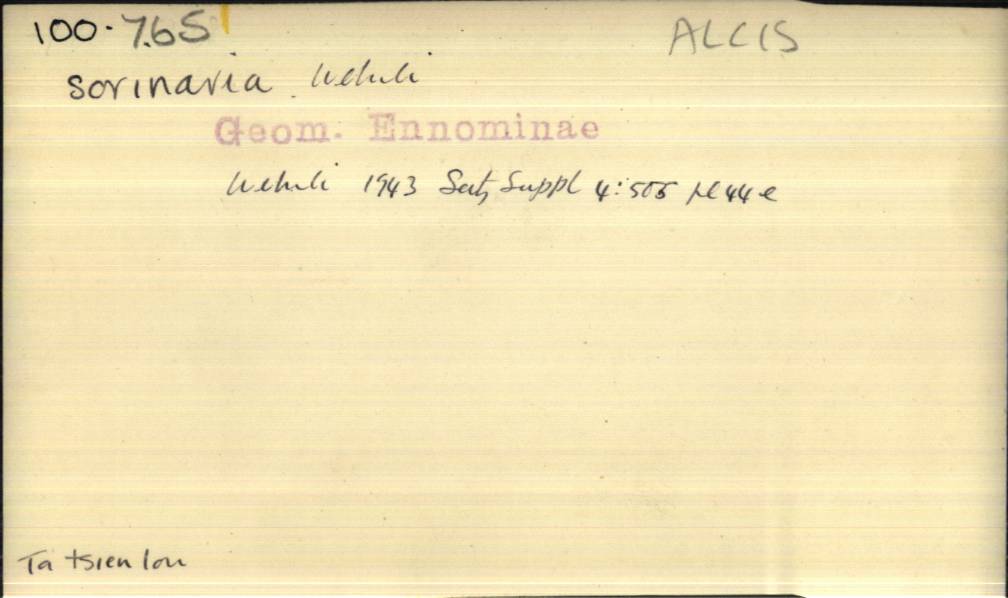 100.765 ALCIS
sorinaria. Wehrli
Geom. Ennominae
Wehrli 1943 Seitz Suppl 4:505 pl 44e
Ta tsien lou